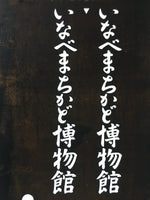 いなべまちかど博物館
いなべまちかど博物館